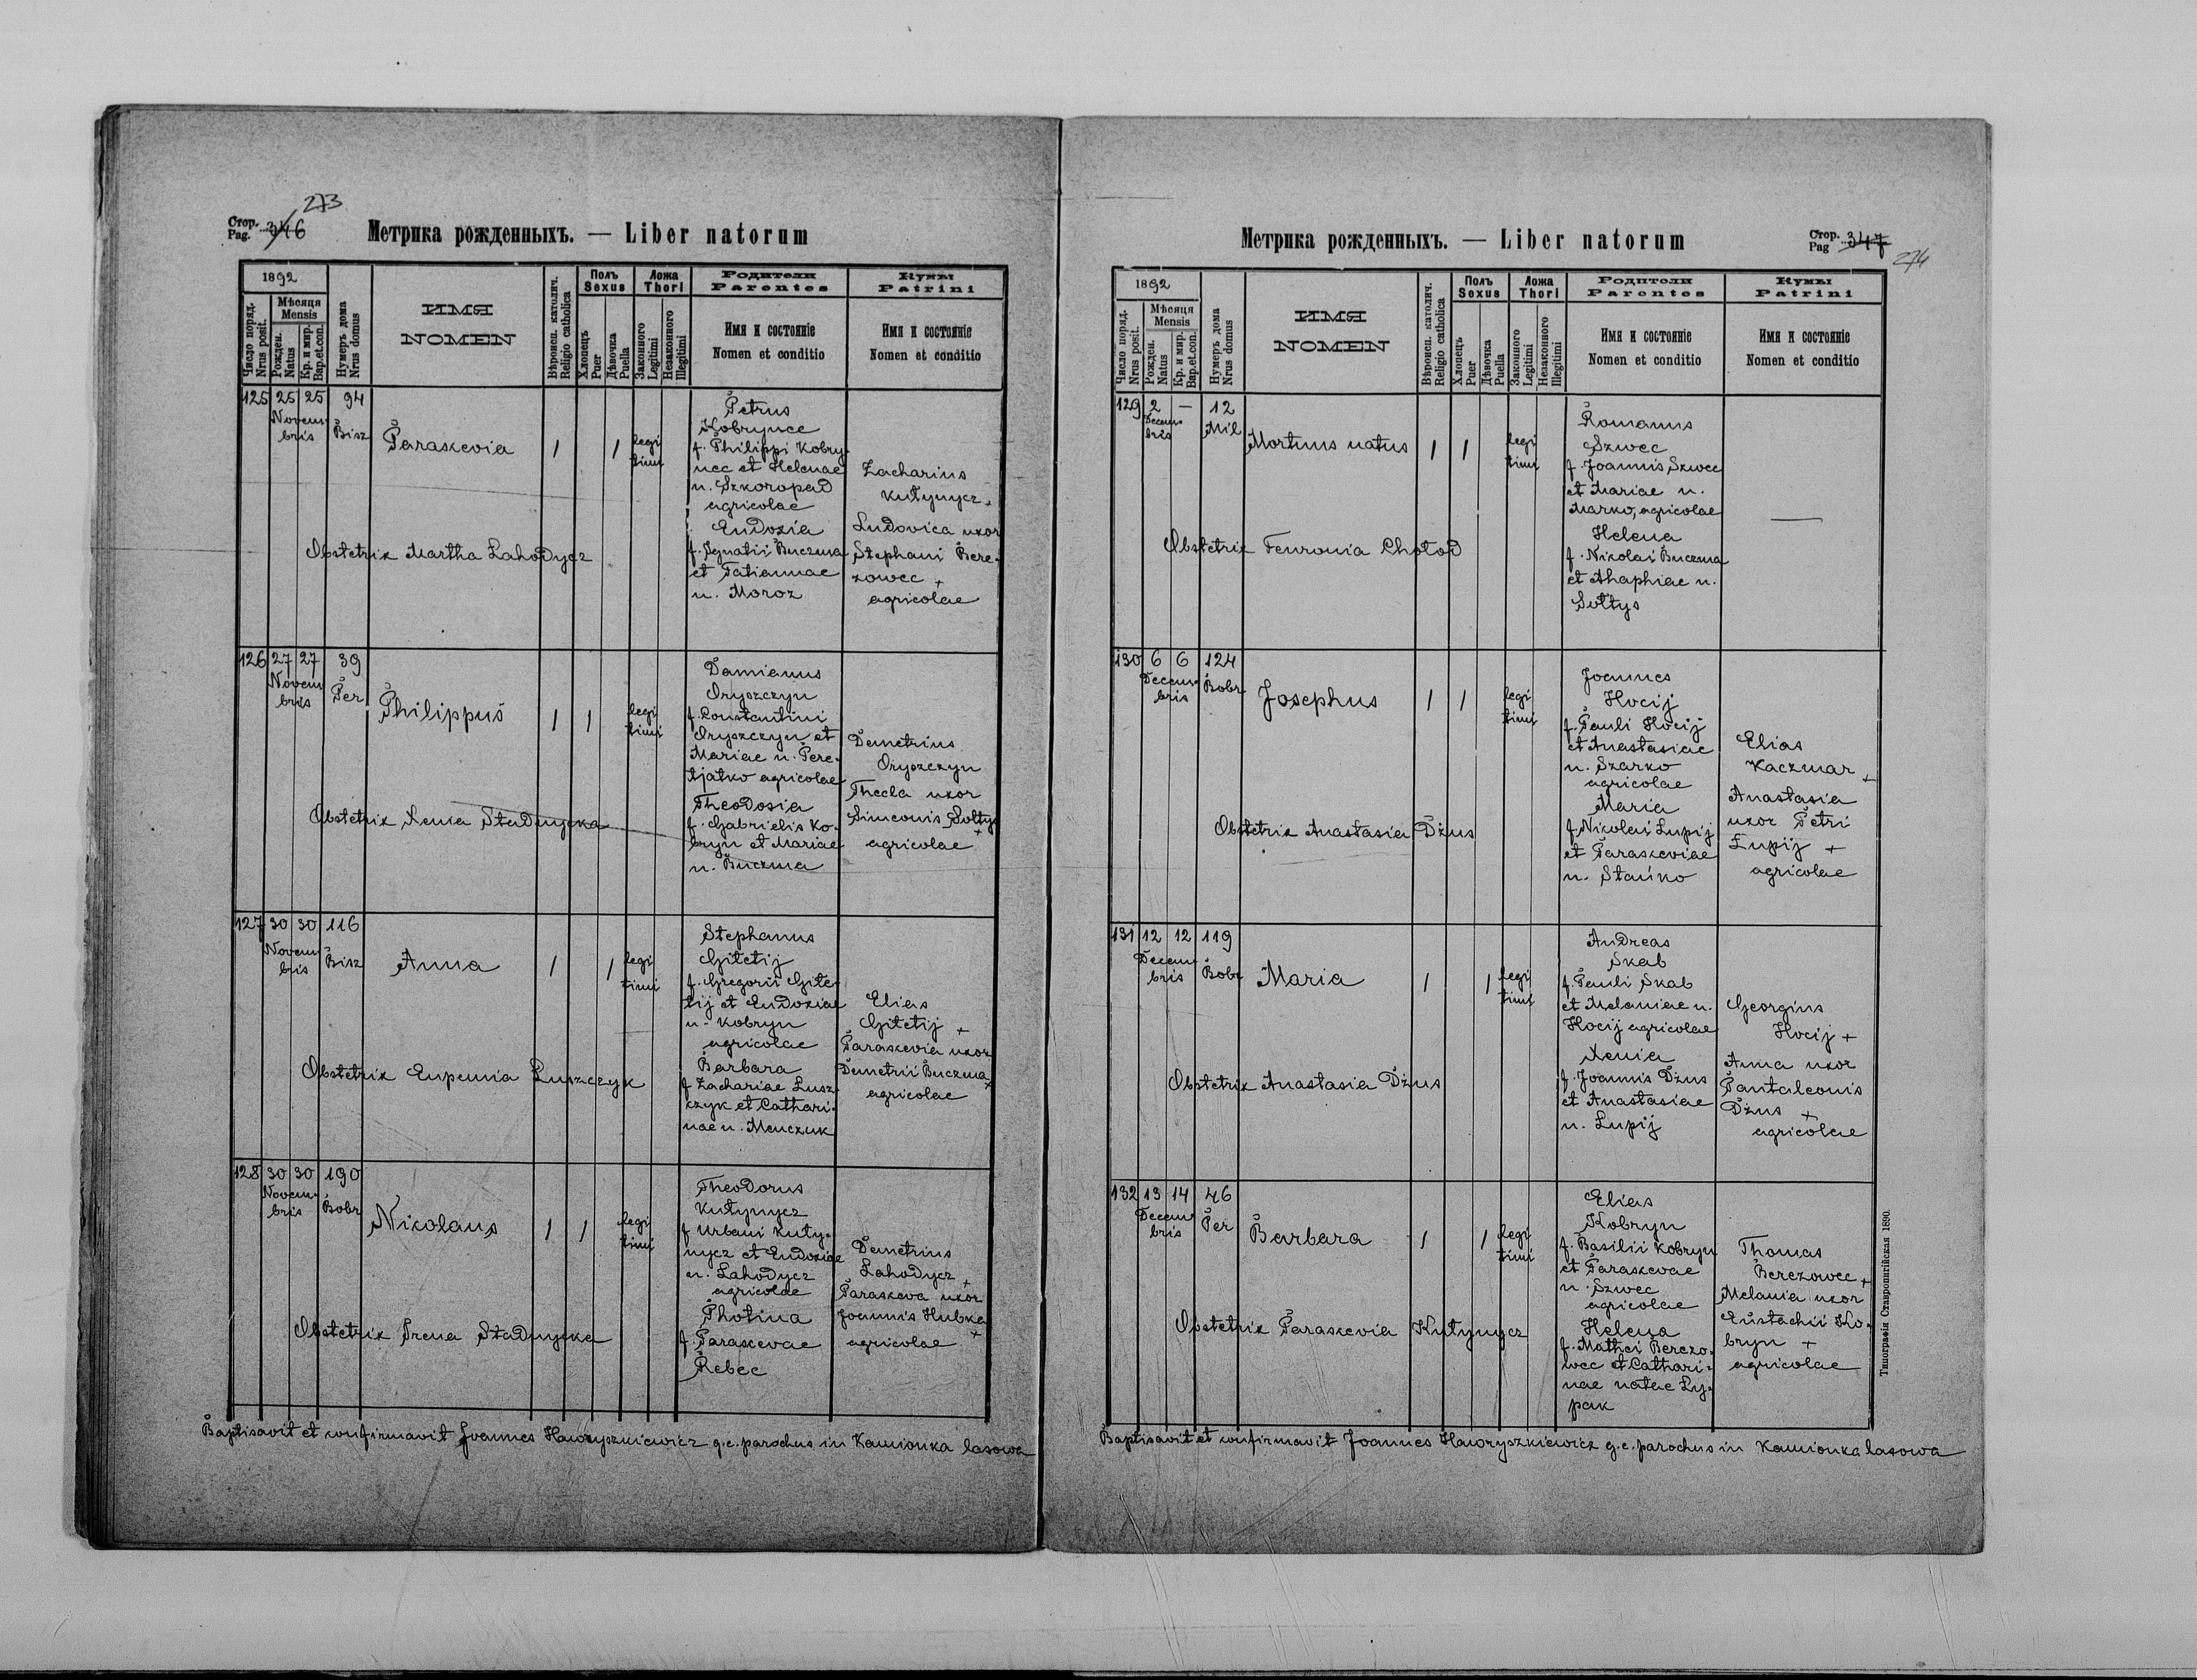 273
Стор. Pag. 346
Метрика рожденныхъ. — Liber natorum
1892
Число поряд. Nrus posit.
Мѣсяця Mensis
Рожден. Natus
Кр. и мир. Bap. et. con.
Нумеръ дома Nrus domus
ИМЯ
NOMEN
Вѣроисп. католич. Religio catholica
Полъ Sexus
Хлопецъ Puer
Дѣвочка Puella
Ложа Thori
Законного Legitimi
Незаконного Illegitimi
Родители Parentes
Имя и состоянiе
Nomen et conditio
Кумы Patrini
Имя и состоянiе
Nomen et conditio
125 25 25 94
Novem-
bris
Bisz
Paraskevia
1
1
legi
timi
Petrus
Kobrynce
f. Philippi Kobry-
nec et Helenae
n. Szkoropad
agricolae
Eudoxia
f. Ignatii Buczma
et Tatiannae
n. Moroz
Zacharius
Kutynycz +
Ludovica uxor
Stephani Bere-
zowec +
agricolae
Obstetrix Martha Lahodycz
126 27 27 39
Novem
bris
Per
Philippus
1
1
legi
timi
Damianus
Oryszczyn
f. Constantini
Oryszczyn et
Mariae n. Pere-
tjatko agricolae
Theodosia
f. Gabrielis Ko-
bryn et Mariae
n. Buczma
Demetrius
Oryszczyn
Thecla uxor
Simeonis Soltys
+
agricolae
Obstetrix Xenia Stadnycka
127 30 30 116
Novem
bris
Bisz
Anna
1
1
legi
timi
Stephanus
Gitetij
f. Gregorii Gite-
tij et Eudoxiae
n. Kobryn
agricolae
Barbara
f Zachariae Lusz-
czyk et Cathari-
nae n. Menczuk
Elias
Gitetij +
Paraskevia uxor
Demetrii Buczma
+
agricolae
Obstetrix Eupemia Luszczyk
128 30 30 190
Novem-
bris
Bobr
Nikolaus
1
1
legi
timi
Theodorus
Kutynycz
f Urbani Kuty-
nycz et Eudoxiae
n. Lahodycz
agricolae
Photina
f. Paraskevae
Rebec
Demetrius
Lahodycz +
Paraskeva uxor
Joannis Hubka
+
agricolae
Obstetrix Irena Stadnycka
Baptisavit et confirmavit Joannes Haworyszkiewicz g.c. parochus in Kamionka lasowa
Метрика рожденныхъ. — Liber natorum
Стор. Pag 347
274
1892
Число поряд. Nrus posit.
Мѣсяця Mensis
Рожден. Natus
Кр. и мир. Bap. et. con.
Нумеръ дома Nrus domus
ИМЯ
NOMEN
Вѣроисп. католич. Religio catholica
Полъ Sexus
Хлопецъ Puer
Дѣвочка Puella
Ложа Thori
Законного Legitimi
Незаконного Illegitimi
Родители Parentes
Имя и состоянiе
Nomen et conditio
Кумы Patrini
Имя и состоянiе
Nomen et conditio
129 2 — 12
Decem
bris
Mil
Mortuus natus
1
1
legi
timi
Romanus
Szwec
f. Joannis Szwec
et Mariae n.
Marko, agricolae
Helena
f. Nikolai Buczma
et Ahaphiae n.
Soltys
—
Obstetrix Fevronia Chołod
130 6 6 124
Decem-
bris
Bobr
Josephus
1
1
legi
timi
Joannes
Hocij
f. Pauli Hocij
et Anastasiae
n. Szarko
agricolae
Maria
f. Nikolai Lupij
et Paraskeviae
n. Stańko
Elias
Kaczmar +
Anastasia
uxor Petri
Lupij +
agricolae
Obstetrix Anastasia Dżus
131 12 12 119
Decem-
bris
Bobr
Maria
1
1
legi
timi
Andreas
Skab
f. Pauli Skab
et Melaniae n.
Hocij agricolae
Xenia
f. Joannis Dżus
et Anastasiae
n. Lupij
Georgius
Hocij +
Anna uxor
Pantaleonis
Dżus +
agricolae
Obstetrix Anastasia Dżus
132 13 14 46
Decem
bris
Per
Barbara
1
1
legi
timi
Elias
Kobryn
f. Basilii Kobryn
et Paraskevae
n. Szwec
agricolae
Helena
f. Mathei Berezo-
wec et Cathari-
nae natae Ly-
pak
Thomas
Berezowec +
Melania uxor
Eustachii Ko-
bryn +
agricolae
Obstetrix Paraskevia Kutynycz
Baptisavit et confirmavit Joannes Haworyszkiewicz g.c. parochus in Kamionka lasowa
Типографiя Ставропигiйская 1890.